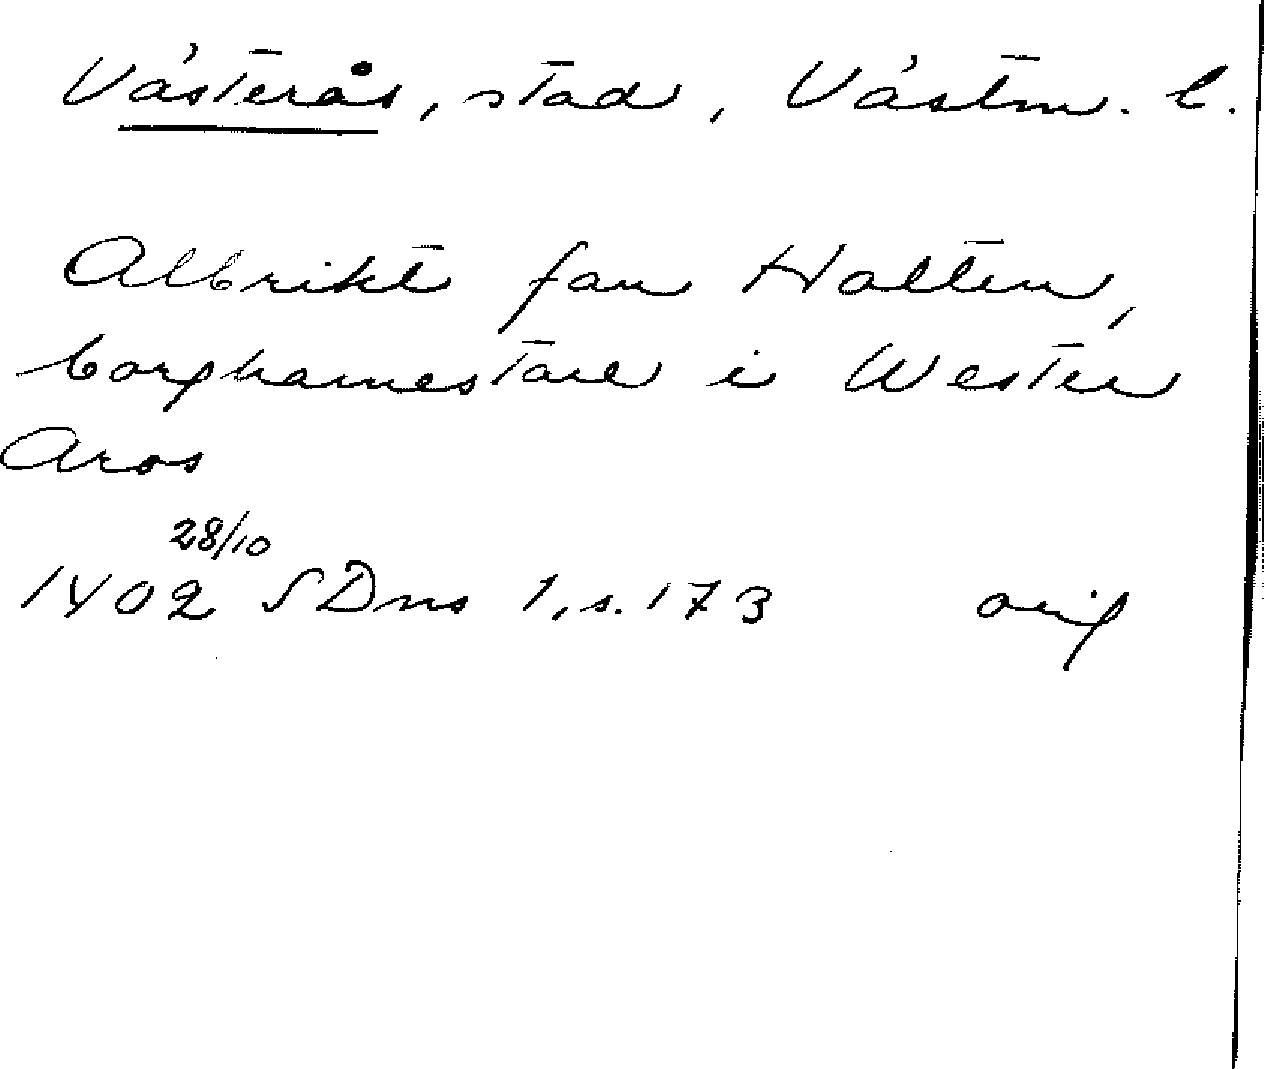 Västerås, stad, Västm. l.
Albrikt fan Holten,
borghamestare i Wester
Aros
28/10
1402 SDns 1, s. 173 orig